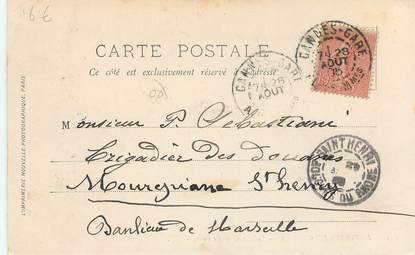 6€
CARTE POSTALE
Ce côté est exclusivement réservé à l'adresse
CANNES-GARE
28
AOUT
CANNES-GARE
28
AOUT
Monsieur P. Sebastiani
Brigadier des Douanes
Mourepiane St henri
Banlieue de Marseille
SAINT HENRI
BOUCHES DU RHONE
L'IMPRIMERIE NOUVELLE PHOTOGRAPHIQUE, PARIS